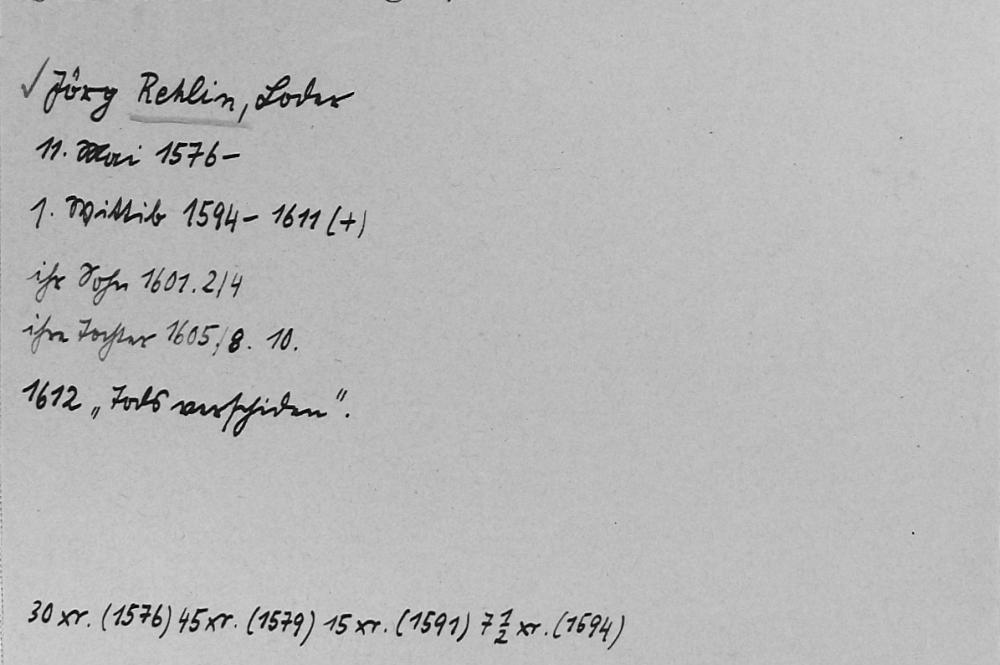 ✓ Jörg Rehlin, Loder
11. Mai 1576–
1. Wittib 1594–1611 (+)
ihr Sohn 1601. 2/4
ihre Tochter 1605/8. 10.
1612 „Tods verschiden".
30 xr. (1576) 45 xr. (1579) 15 xr. (1591) 7 1/2 xr. (1594)